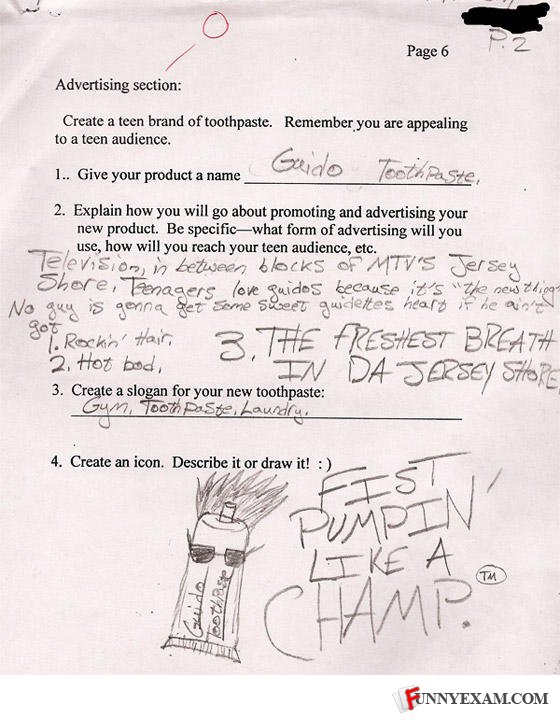 P. 2
Page 6
Advertising section:
Create a teen brand of toothpaste. Remember you are appealing
to a teen audience.
1.. Give your product a name Guido Toothpaste.
2. Explain how you will go about promoting and advertising your
new product. Be specific—what form of advertising will you
use, how will you reach your teen audience, etc.
Television, in between blocks of MTV'S Jersey
Shore. Teenagers love guidos because it's "the new thing"
No guy is gonna get some sweet guidettes heart if he ain't
got
1. Rockin' Hair.
2. Hot bod.
3. THE FRESHEST BREATH
IN DA JERSEY SHORE
3. Create a slogan for your new toothpaste:
Gym, Toothpaste, Laundry.
4. Create an icon. Describe it or draw it! : )
FIST
PUMPIN'
LIKE A
CHAMP.
TM
Guido
Toothpaste
FUNNYEXAM.COM